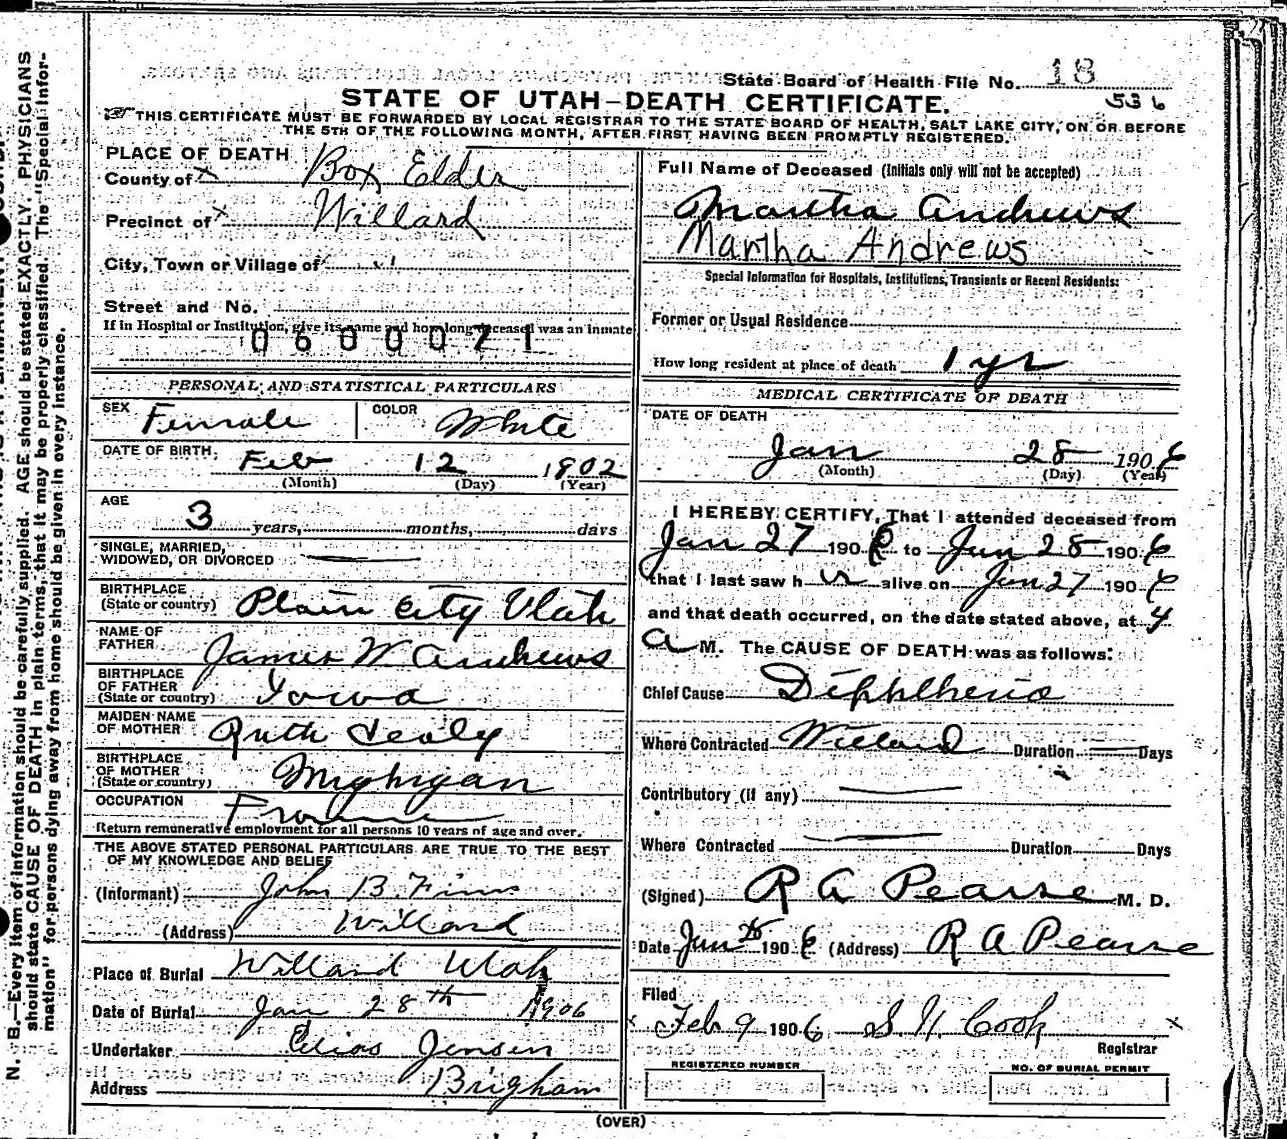 State Board of Health File No. 18
STATE OF UTAH—DEATH CERTIFICATE. 536
THIS CERTIFICATE MUST BE FORWARDED BY LOCAL REGISTRAR TO THE STATE BOARD OF HEALTH, SALT LAKE CITY, ON OR BEFORE
THE 5TH OF THE FOLLOWING MONTH, AFTER FIRST HAVING BEEN PROMPTLY REGISTERED.
PLACE OF DEATH
County of x Box Elder
Precinct of x Willard
City, Town or Village of "
Street and No.
If in Hospital or Institution, give its name and how long deceased was an inmate
0600071
PERSONAL AND STATISTICAL PARTICULARS
SEX Female COLOR White
DATE OF BIRTH, Feb 12 1902
(Month) (Day) (Year)
AGE
3 years, months, days
SINGLE, MARRIED,
WIDOWED, OR DIVORCED —
BIRTHPLACE
(State or country) Plain City Utah
NAME OF
FATHER James W. Andrews
BIRTHPLACE
OF FATHER
(State or country) Iowa
MAIDEN NAME
OF MOTHER Ruth
BIRTHPLACE
OF MOTHER
(State or country) Mighigan
OCCUPATION
Return remunerative employment for all persons 10 years of age and over.
THE ABOVE STATED PERSONAL PARTICULARS ARE TRUE TO THE BEST
OF MY KNOWLEDGE AND BELIEF
(Informant) John B.
(Address) Willard
Place of Burial Willard Utah
Date of Burial Jan 28th 1906
Undertaker Elias Jensen
Address Brigham
Full Name of Deceased (Initials only will not be accepted)
Martha Andrews
Martha Andrews
Special Information for Hospitals, Institutions, Transients or Recent Residents:
Former or Usual Residence
How long resident at place of death 1 yr
MEDICAL CERTIFICATE OF DEATH
DATE OF DEATH
Jan 28 1906
(Month) (Day) (Year)
I HEREBY CERTIFY, That I attended deceased from
Jan 27 1906 to Jan 28 1906
that I last saw her alive on Jan 27 1906
and that death occurred, on the date stated above, at 4
A M. The CAUSE OF DEATH was as follows:
Chief Cause Diphtheria
Where Contracted Willard Duration — Days
Contributory (if any) —
Where Contracted — Duration Days
(Signed) R A Pearse M. D.
Date Jan 1906 (Address) R A Pearse
Filed
Feb 9 1906 S. N. Cook x
Registrar
REGISTERED NUMBER NO. OF BURIAL PERMIT
(OVER)
N. B.—Every item of information should be carefully supplied. AGE should be stated EXACTLY. PHYSICIANS
should state CAUSE OF DEATH in plain terms, that it may be properly classified. The "Special Infor-
mation" for persons dying away from home should be given in every instance.